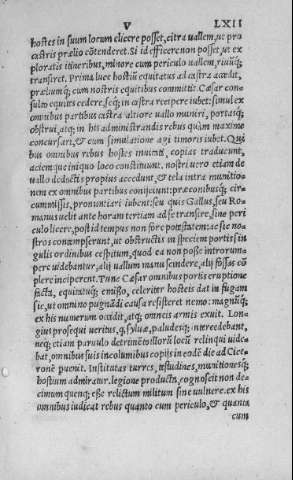 V LXII
hostes in suum locum elicere posset, citra uallem, ut pro
castris prælio cōtenderet. Si id efficere non posset, ut ex
ploratis itineribus, minore cum periculo uallem, riuūq;
transiret. Prima luce hostiū equitatus ad castra accedit,
præliumq; cum nostris equitibus committit. Cæsar con-
sulto equites cedere, seq; in castra recipere iubet: simul ex
omnibus partibus castra altiore uallo muniri, portasq;
obstrui, atq; in his administrandis rebus quàm maxime
concursari, & cum simulatione agi timoris iubet. Qui
bus omnibus rebus hostes inuitati, copias traducunt,
aciemq; iniquo loco constituunt. nostri uero etiam de
uallo deductis propius accedunt, & tela intra munitio-
nem ex omnibus partibus conijciunt: præconibusq; cir-
cummissis, pronuntiari iubent: seu quis Gallus, seu Ro-
manus uelit ante horam tertiam ad se transire, sine peri
culo licere, post id tempus non fore potestatem: ac sic no-
stros contempserunt, ut obstructis in speciem portis sin
gulis ordinibus cespitum, quod ea non posse introrum-
pere uidebantur, alij uallum manu scindere, alij fossas cō
plere inciperent. Tunc Cæsar omnibus portis eruptione
facta, equitatuq; emisso, celeriter hosteis dat in fugam
sic, ut omnino pugnādi causa resisteret nemo: magnūq;
ex his numerum occidit, atq; omneis armis exuit. Lon-
gius prosequi ueritus, q, syluæ, paludesq; intercedebant,
neq; etiam paruulo detrimēto illorū locū relinqui uide-
bat, omnibus suis incolumibus copijs eodē die ad Cice-
ronē peruenit. Institutas turres, testudines, munitionesq;
hostium admiratur. legione producta, cognoscit non de-
cimum quenq; esse relictum militum sine uulnere. ex his
omnibus iudicat rebus quanto cum periculo, & quanta
cum